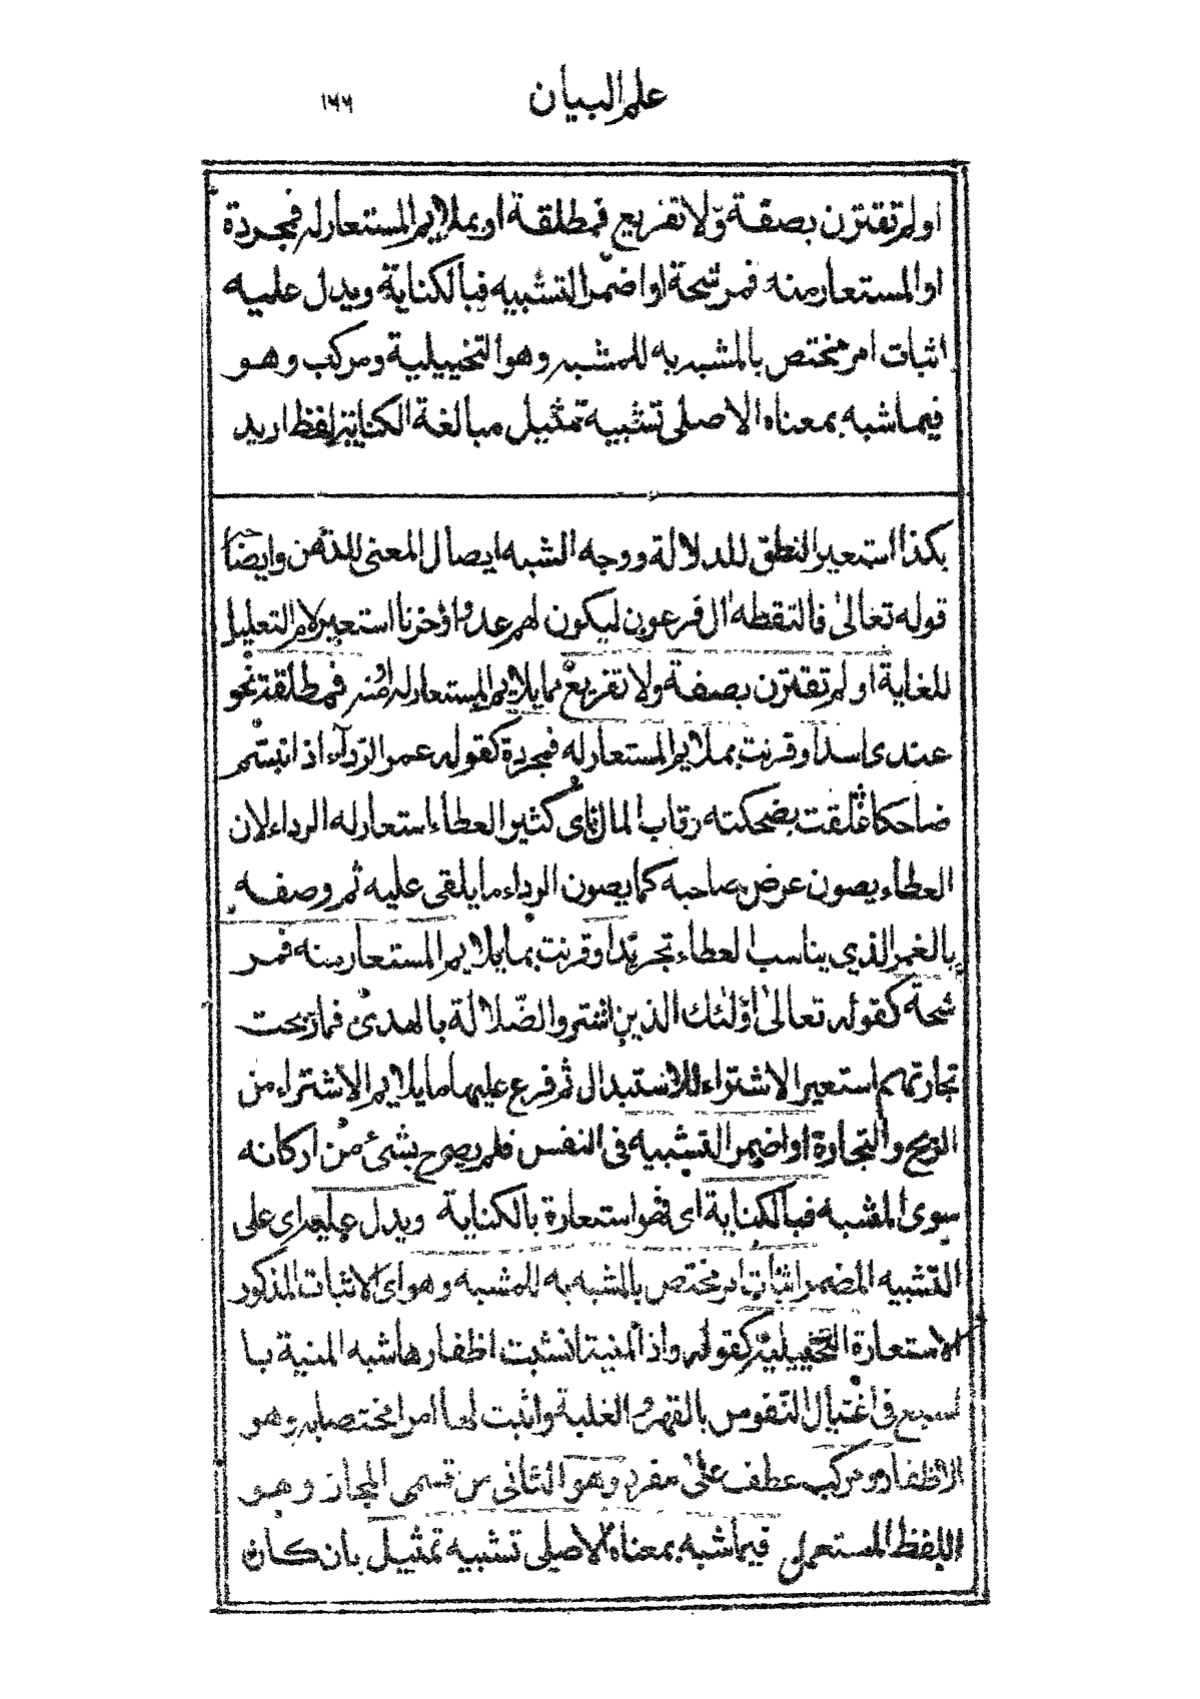 علم البيان
١٦٦
اولم تقترن بصفة ولا تفريع فمطلقة او بملايم المستعار له فمجردة
او المستعار منه فمرشحة او اضمر التشبيه فبالكناية ويدل عليه
اثبات امر مختص بالمشبه به للمشبه وهو التخييلية ومركب وهو
فيما شبه بمعناه الاصلى تشبيه تمثيل مبالغة الكناية لفظ اريد
بكذا استعير النطق للدلالة ووجه الشبه ايصال المعنى للذهن وايضا
قوله تعالىٰ فالتقطه اٰل فرعون ليكون لهم عدوا وحزنا استعير لام التعليل
للغاية او لم تقترن بصفة ولا تفريع مما يلايم المستعار له او منه فمطلقة نحو
عندى اسد او قرنت بملايم المستعار له فمجردة كقوله غمر الردآء اذا تبسّم
ضاحكا غلقت بضحكته رقاب المال اى كثير العطاء استعار له الرداء لان
العطاء يصون عرض صاحبه كما يصون الرداء ما يلقى عليه ثم وصفه
بالغمر الذي يناسب العطاء تجريدا او قرنت بما يلايم المستعار منه فمر
شحة كقوله تعالىٰ اولٰئك الذين اشتروا الضّلالة بالهدىٰ فما ربحت
تجارتهم استعير الاشتراء للاستبدال ثم فرع عليها ما يلايم الاشتراء من
الربح والتجارة او اضمر التشبيه فى النفس فلم يصرح بشئ من اركانه
سوى المشبه فبالكناية اى فهو استعارة بالكناية ويدل عليه اى على
التشبيه المضمر اثبات امر مختص بالمشبه به للمشبه وهو اى الاثبات المذكور
الاستعارة التخييلية كقوله واذا المنية انشبت اظفارها شبه المنية با
لسبع فى اغتيال النفوس بالقهر والغلبة واثبت لها امرا مختصا به وهو
الاظفار ومركب عطف علىٰ مفرد وهو الثانى من قسمى المجاز وهو
اللفظ المستعمل فيما شبه بمعناه الاصلى تشبيه تمثيل بان كان